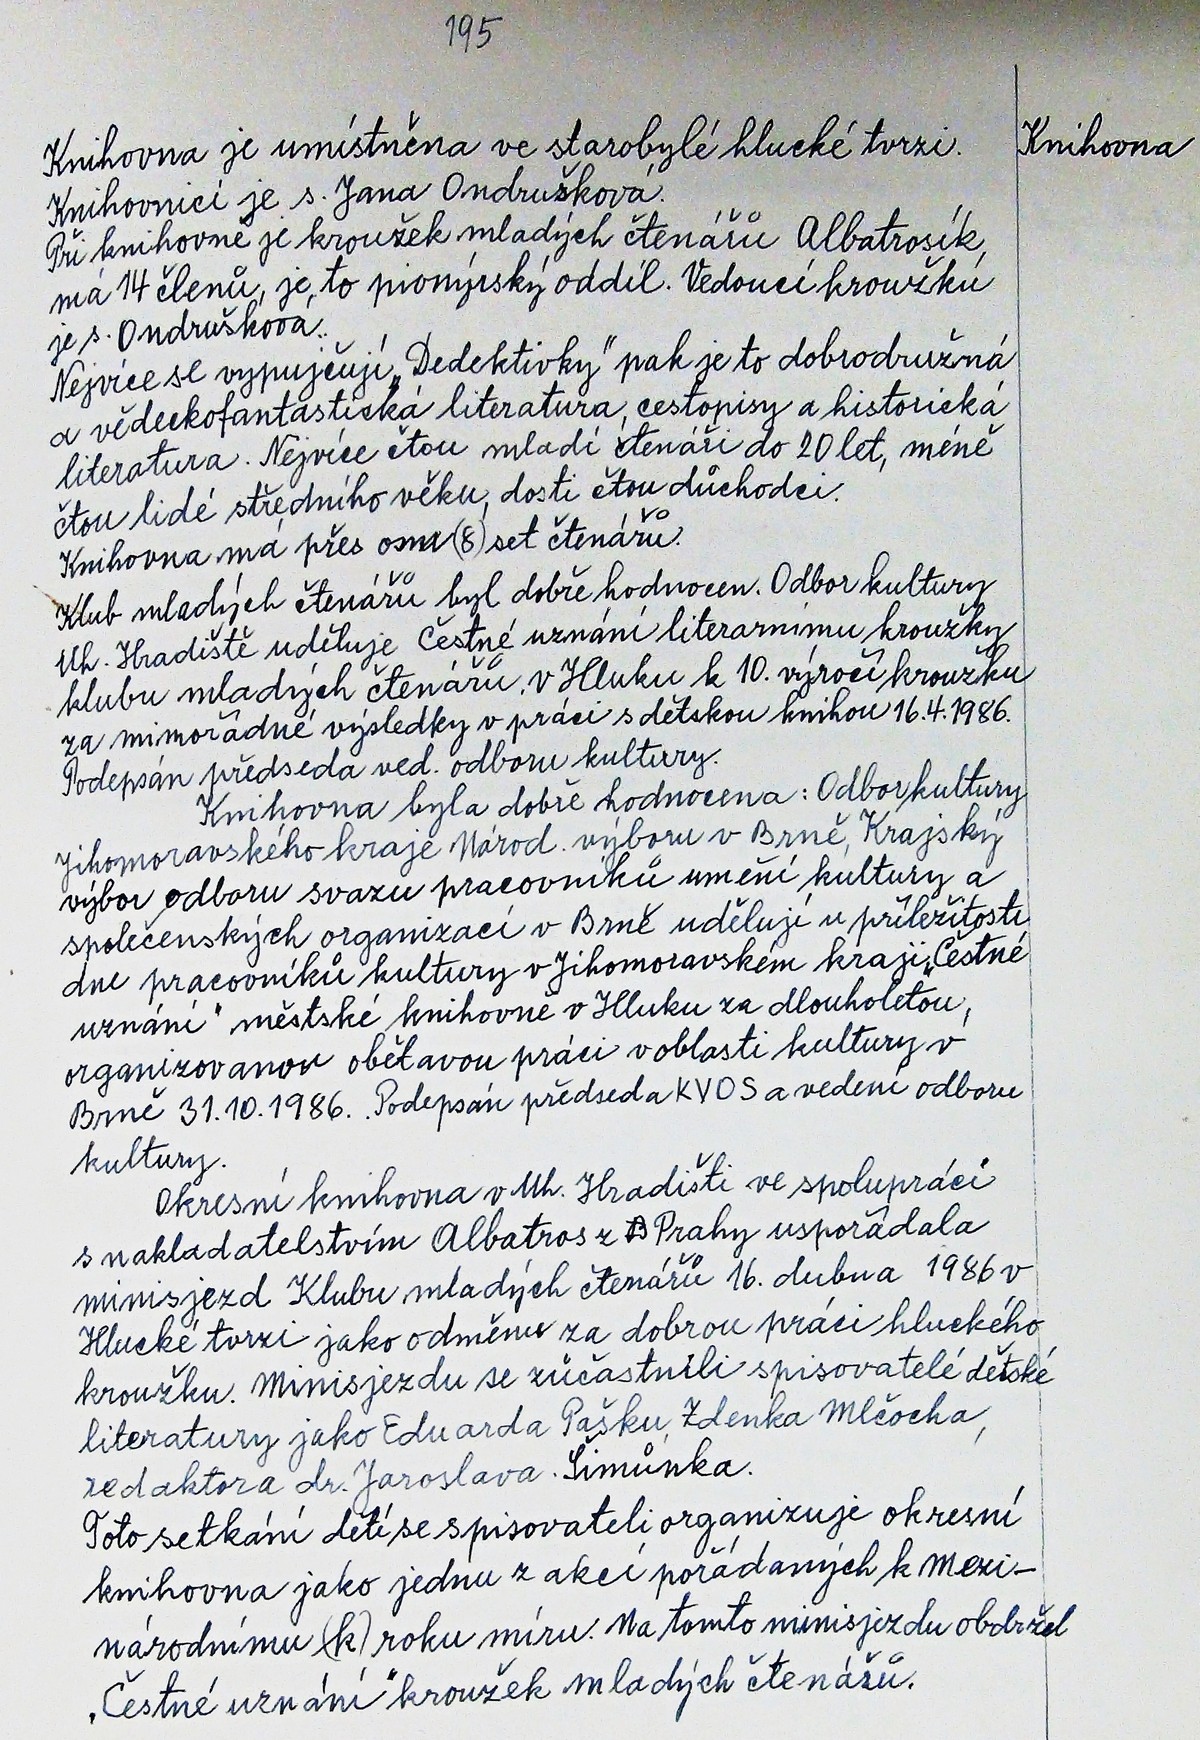 195
Knihovna
Knihovna je umístněna ve starobylé hlucké tvrzi.
Knihovnicí je s. Jana Ondrušková.
Při knihovně je kroužek mladých čtenářů Albatrosík,
má 14 členů, je to pionýrský oddíl. Vedoucí kroužků
je s. Ondrušková.
Nejvíce se vypujčují „Dedektivky" pak je to dobrodružná
a vědeckofantastická literatura, cestopisy a historická
literatura. Nejvíce čtou mladí čtenáři do 20 let, méně
čtou lidé středního věku, dosti čtou důchodci.
Knihovna má přes osm (8) set čtenářů.
Klub mladých čtenářů byl dobře hodnocen. Odbor kultury
Uh. Hradiště uděluje Čestné uznání literarnímu kroužky
klubu mladých čtenářů, v Hluku k 10. výročí kroužku
za mimořádné výsledky v práci s dětskou knihou 16.4.1986.
Podepsán předseda ved. odboru kultury.
Knihovna byla dobře hodnocena: Odbor kultury
Jihomoravského kraje Národ. výboru v Brně, Krajský
výbor odboru svazu pracovníků umění kultury a
společenských organizací v Brně udělují u příležitosti
dne pracovníků kultury v Jihomoravském kraji „Čestné
uznání" městské knihovně v Hluku za dlouholetou,
organizovanou obětavou práci v oblasti kultury v
Brně 31.10.1986. Podepsán předseda KVOS a vedení odboru
kultury.
Okresní knihovna v Uh. Hradišti ve spolupráci
s nakladatelstvím Albatros z Prahy uspořádala
minisjezd Klubu mladých čtenářů 16. dubna 1986 v
Hlucké tvrzi jako odměnu za dobrou práci hluckého
kroužku. Minisjezdu se zůčastnili spisovatelé dětské
literatury jako Eduarda Pašku, Zdenka Mlčocha,
redaktora dr. Jaroslava Šimůnka.
Toto setkání dětí se spisovateli organizuje okresní
knihovna jako jednu z akcí pořádaných k Mezi-
národnímu (k) roku míru. Na tomto minisjezdu obdržel
„Čestné uznání" kroužek mladých čtenářů.